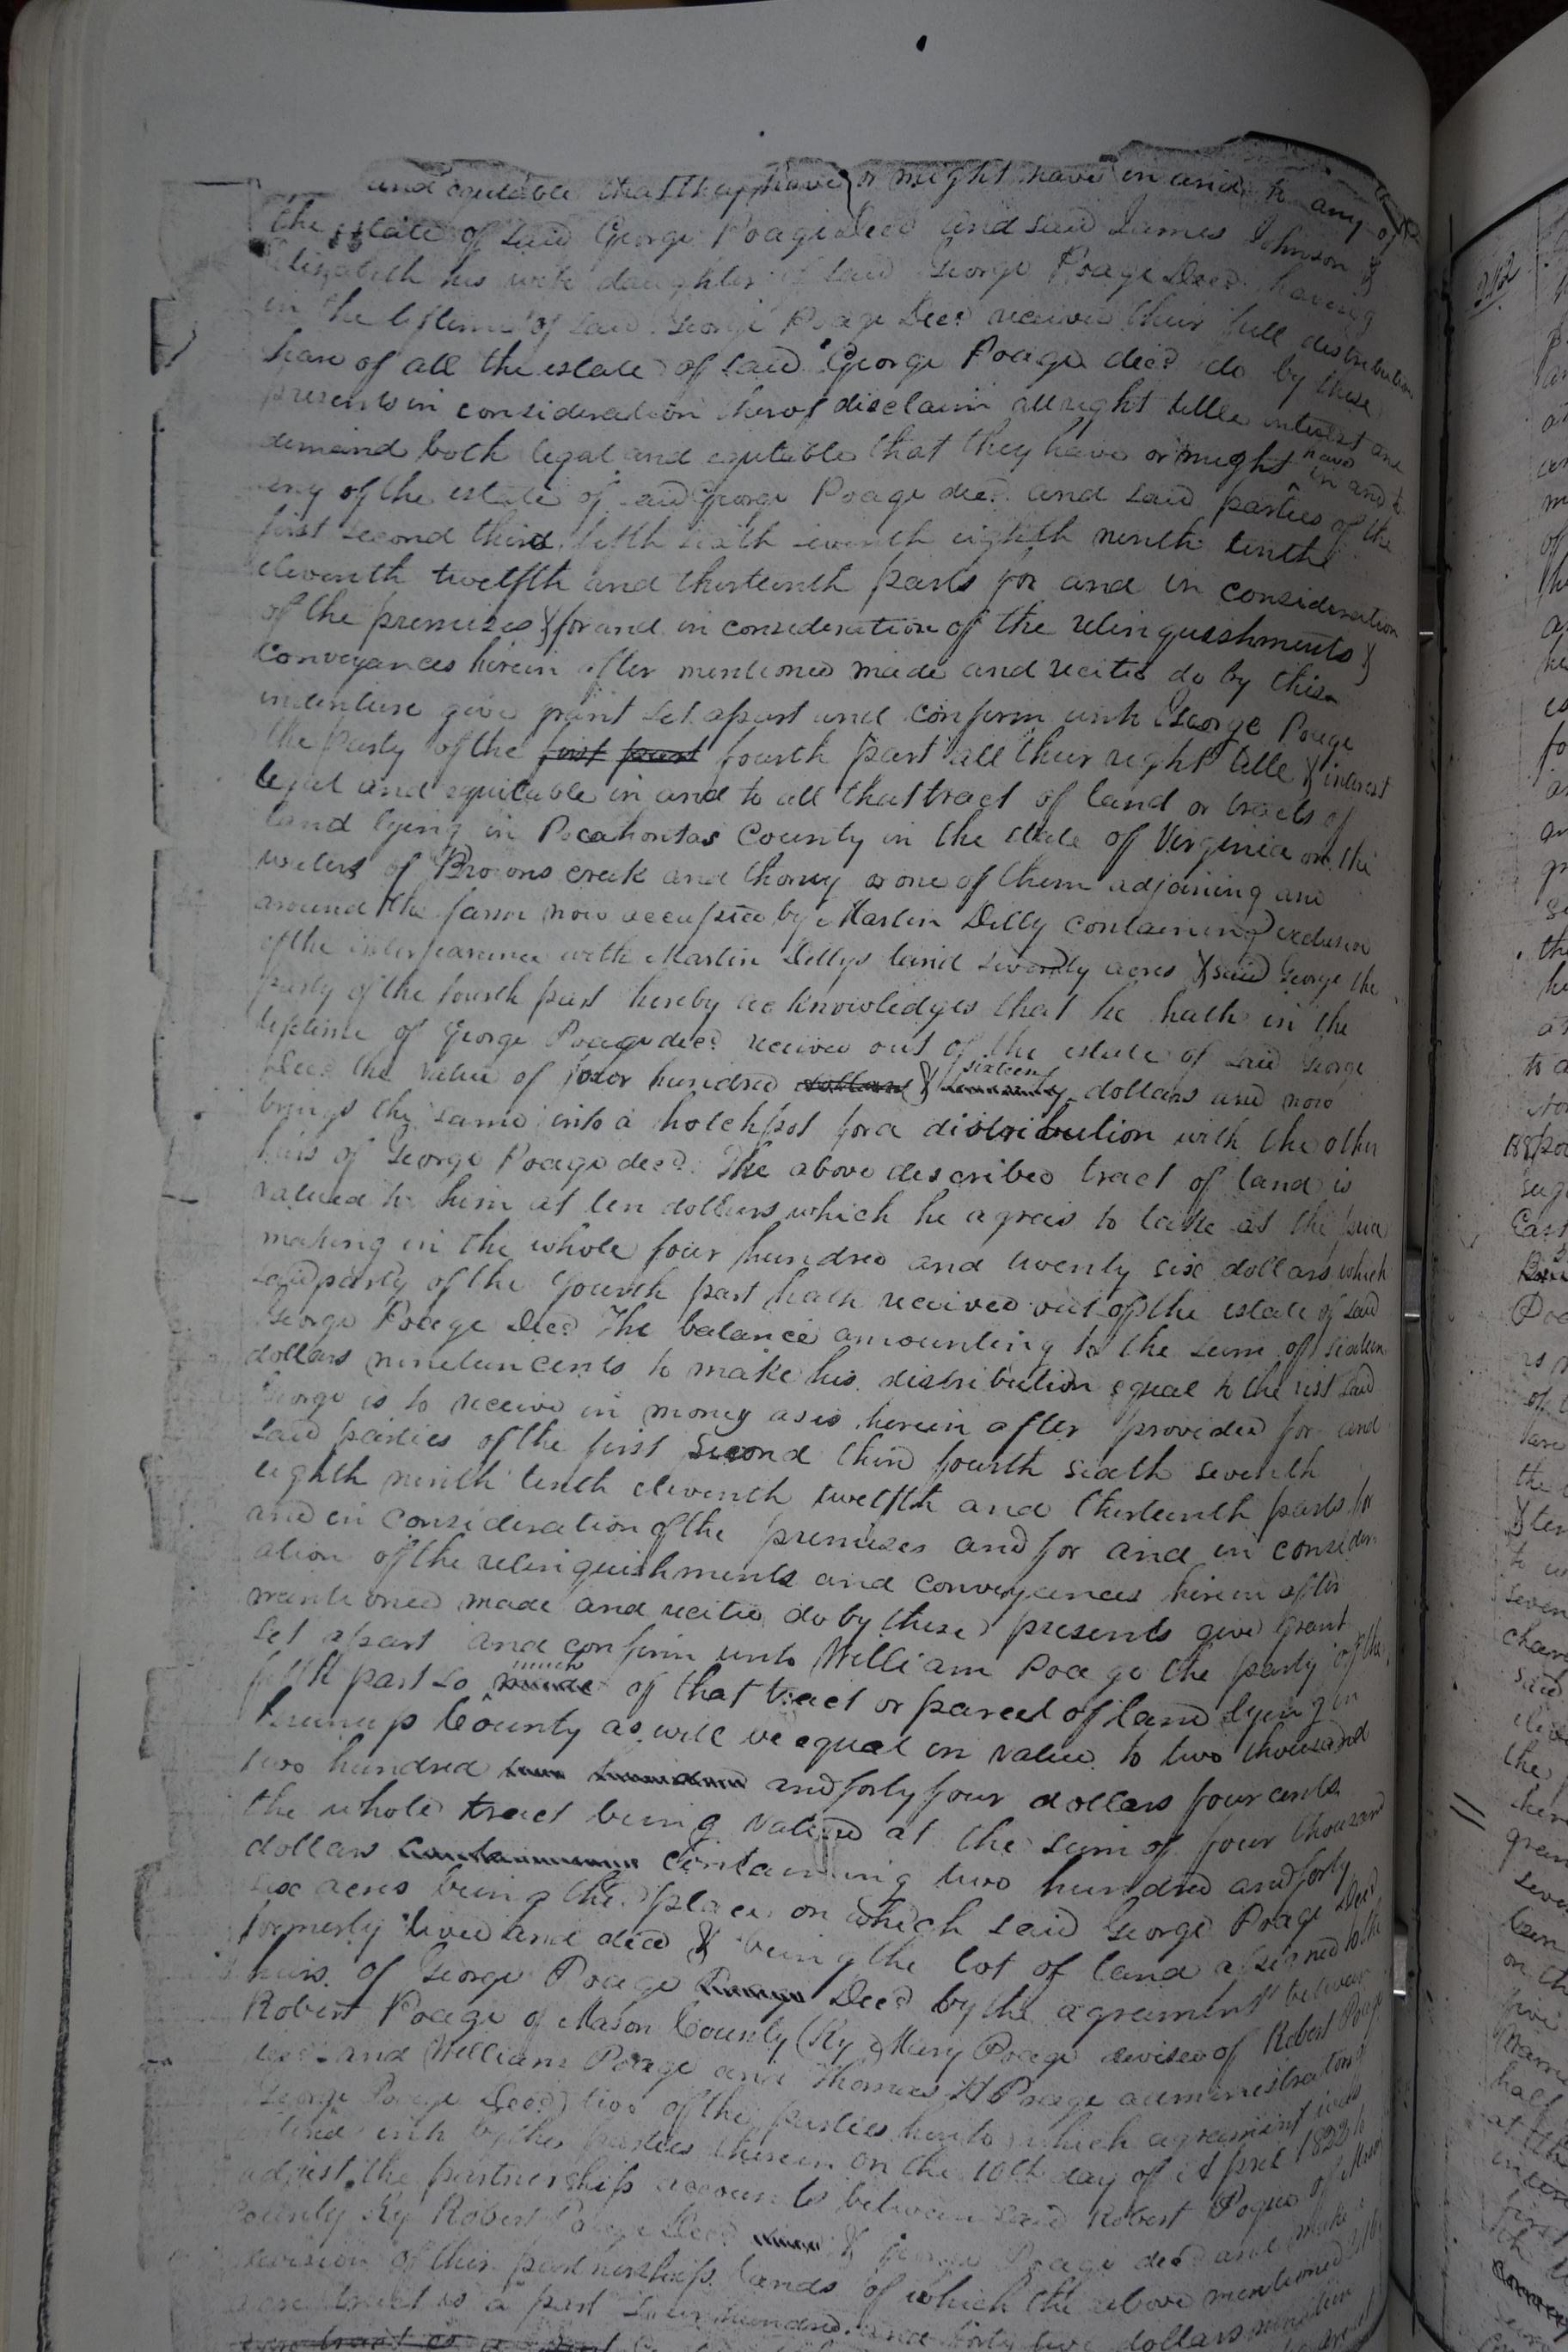 and equitable that they have or might have in and to any of
the estate of said George Poage Decd and said James Johnson &
Elizabeth his wife daughter of said George Poage Decd having
in the lifetime of said George Poage Decd received their full distribution
share of all the estate of said George Poage decd do by these
presents in consideration therof disclaim all right title interest and
demand both legal and equitable that they have or might have in and to
any of the estate of said George Poage decd. and said parties of the
first second third fifth sixth seventh eighth ninth tenth
eleventh twelfth and thirteenth parts for and in consideration
of the premises & for and in consideration of the relinquishments &
conveyances herein after mentioned made and recited do by this
indenture give grant set apart and confirm unto George Poage
the party of the first part fourth part all their right title & interest
legal and equitable in and to all that tract of land or tracts of
land lying in Pocahontas County in the state of Virginia on the
waters of Browns creek and thorny or one of them adjoining and
around the farm now occupied by Martin Dilly containing exclusive
of the interfearance with Martin Dillys land seventy acres & said George the
party of the fourth part hereby acknowledges that he hath in the
lifetime of George Poage decd received out of the estate of said George
Decd the value of four hundred dollars & sixteen dollars and now
brings the same into a hotchpot for a distribution with the other
heirs of George Poage decd. The above described tract of land is
valued to him at ten dollars which he agrees to take at the price
making in the whole four hundred and twenty six dollars which
said party of the fourth part hath received out of the estate of said
George Poage Decd The balance amounting to the sum of sixteen
dollars nineteen cents to make his distribution equal to the rest said
George is to receive in money as is herein after provided for and
said parties of the first second third fourth sixth seventh
eighth ninth tenth eleventh twelfth and thirteenth parts for
and in consideration of the premises and for and in consider
ation of the relinquishments and conveyances herein after
mentioned made and recited do by these presents give grant
set apart and confirm unto William Poage the party of the
fifth part so much of that tract or parcel of land lying in
Greenup County as will be equal in value to two thousand
two hundred and forty four dollars four cents
the whole tract being valued at the sum of four thousand
dollars containing two hundred and forty
six acres being the place on which said George Poage Decd
formerly lived and died & being the lot of land assigned to the
heirs of George Poage Decd by the agreement between
Robert Poage of Mason County Ky & Mary Poage devisee of Robert Poage
decd and William Poage and Thomas H Poage administrators
George Poage Decd two of the parties hereto which agreement was
entered into by the parties therein on the 10th day of April 1822 to
adjust the partnership accounts between said Robert Poage of Mason
County Ky Robert Poage Decd & George Poage decd and make
division of their partnership lands of which the above mentioned 246
acre tract is a part hundred and forty two dollars nineteen